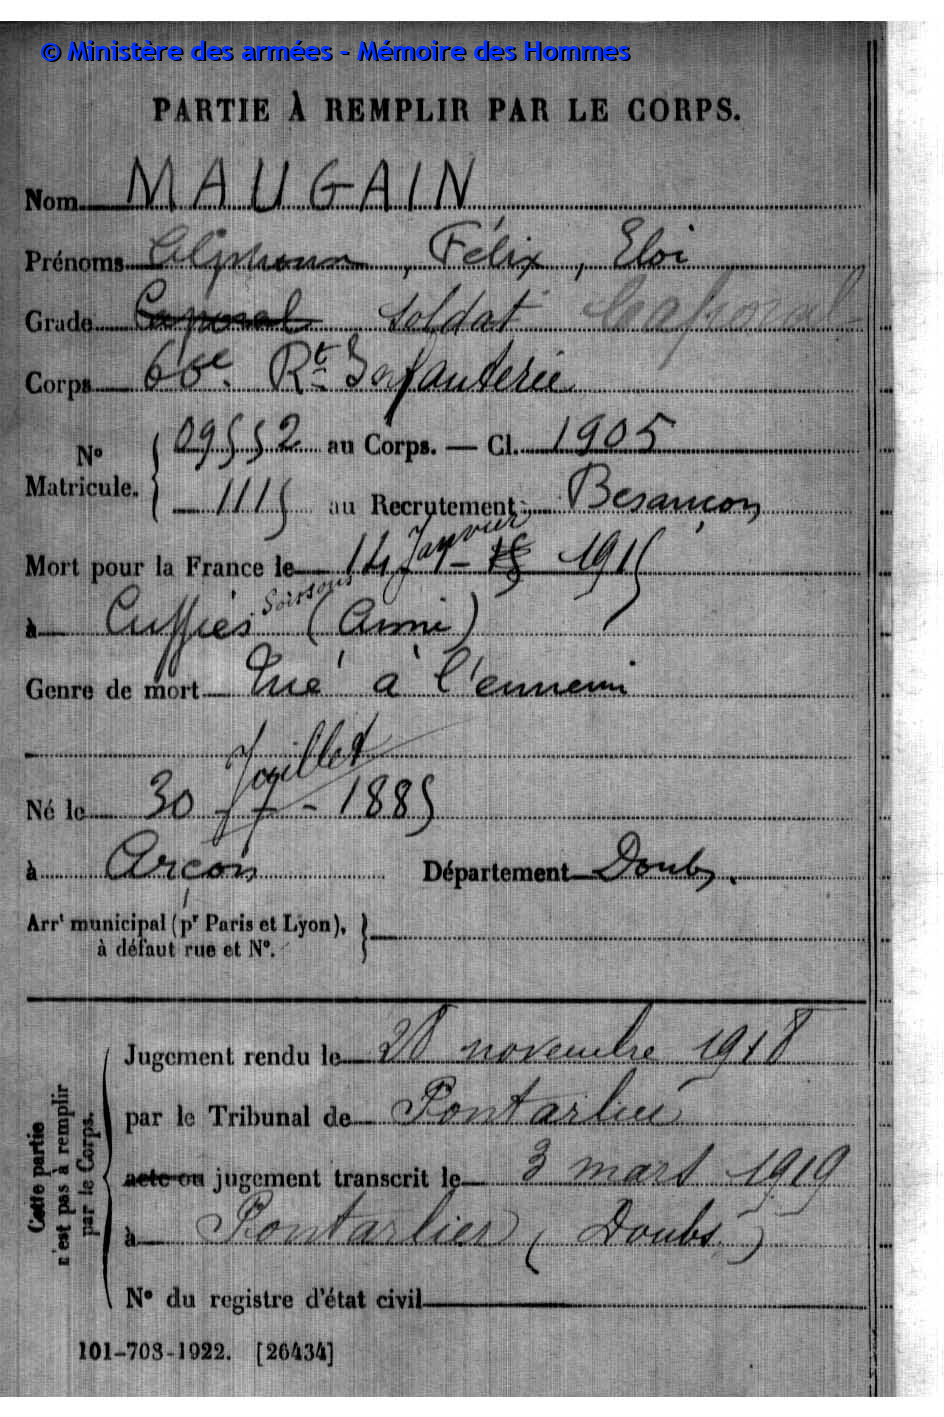 © Ministère des armées - Mémoire des Hommes
PARTIE À REMPLIR PAR LE CORPS.
Nom MAUGAIN
Prénoms Alphonse, Félix, Eloi
Grade Caporal Soldat Caporal
Corps 60e Rt Infanterie
No Matricule. 09552 au Corps. — Cl. 1905
1115 au Recrutement Besançon
Janvier
Mort pour la France le 14 - 1 - 15 1915
à Cuffies Soissons (Aisne)
Genre de mort Tué à l'ennemi
Juillet
Né le 30 - 7 - 1885
à Arçon Département Doubs.
Arrt municipal (pr Paris et Lyon),
à défaut rue et No.
Cette partie
n'est pas à remplir
par le Corps.
Jugement rendu le 28 novembre 1918
par le Tribunal de Pontarlier
acte ou jugement transcrit le 3 mars 1919
à Pontarlier (Doubs)
No du registre d'état civil
101-708-1922. [26434]